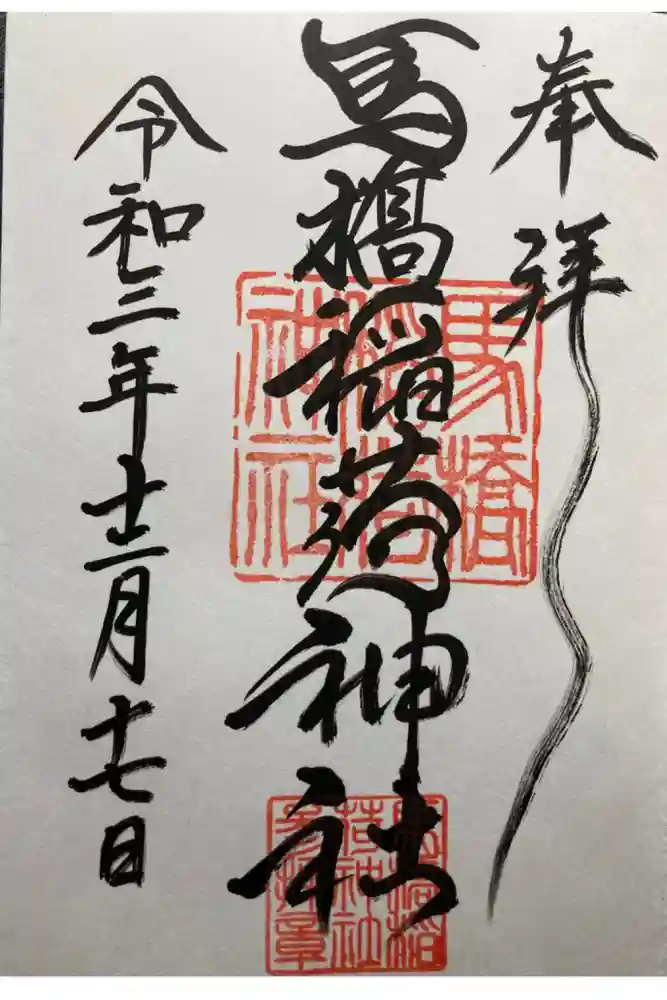 奉拝
馬橋稲荷神社
令和三年十二月十七日
馬橋
稲荷
神社
馬橋稲
荷神社
参拝章